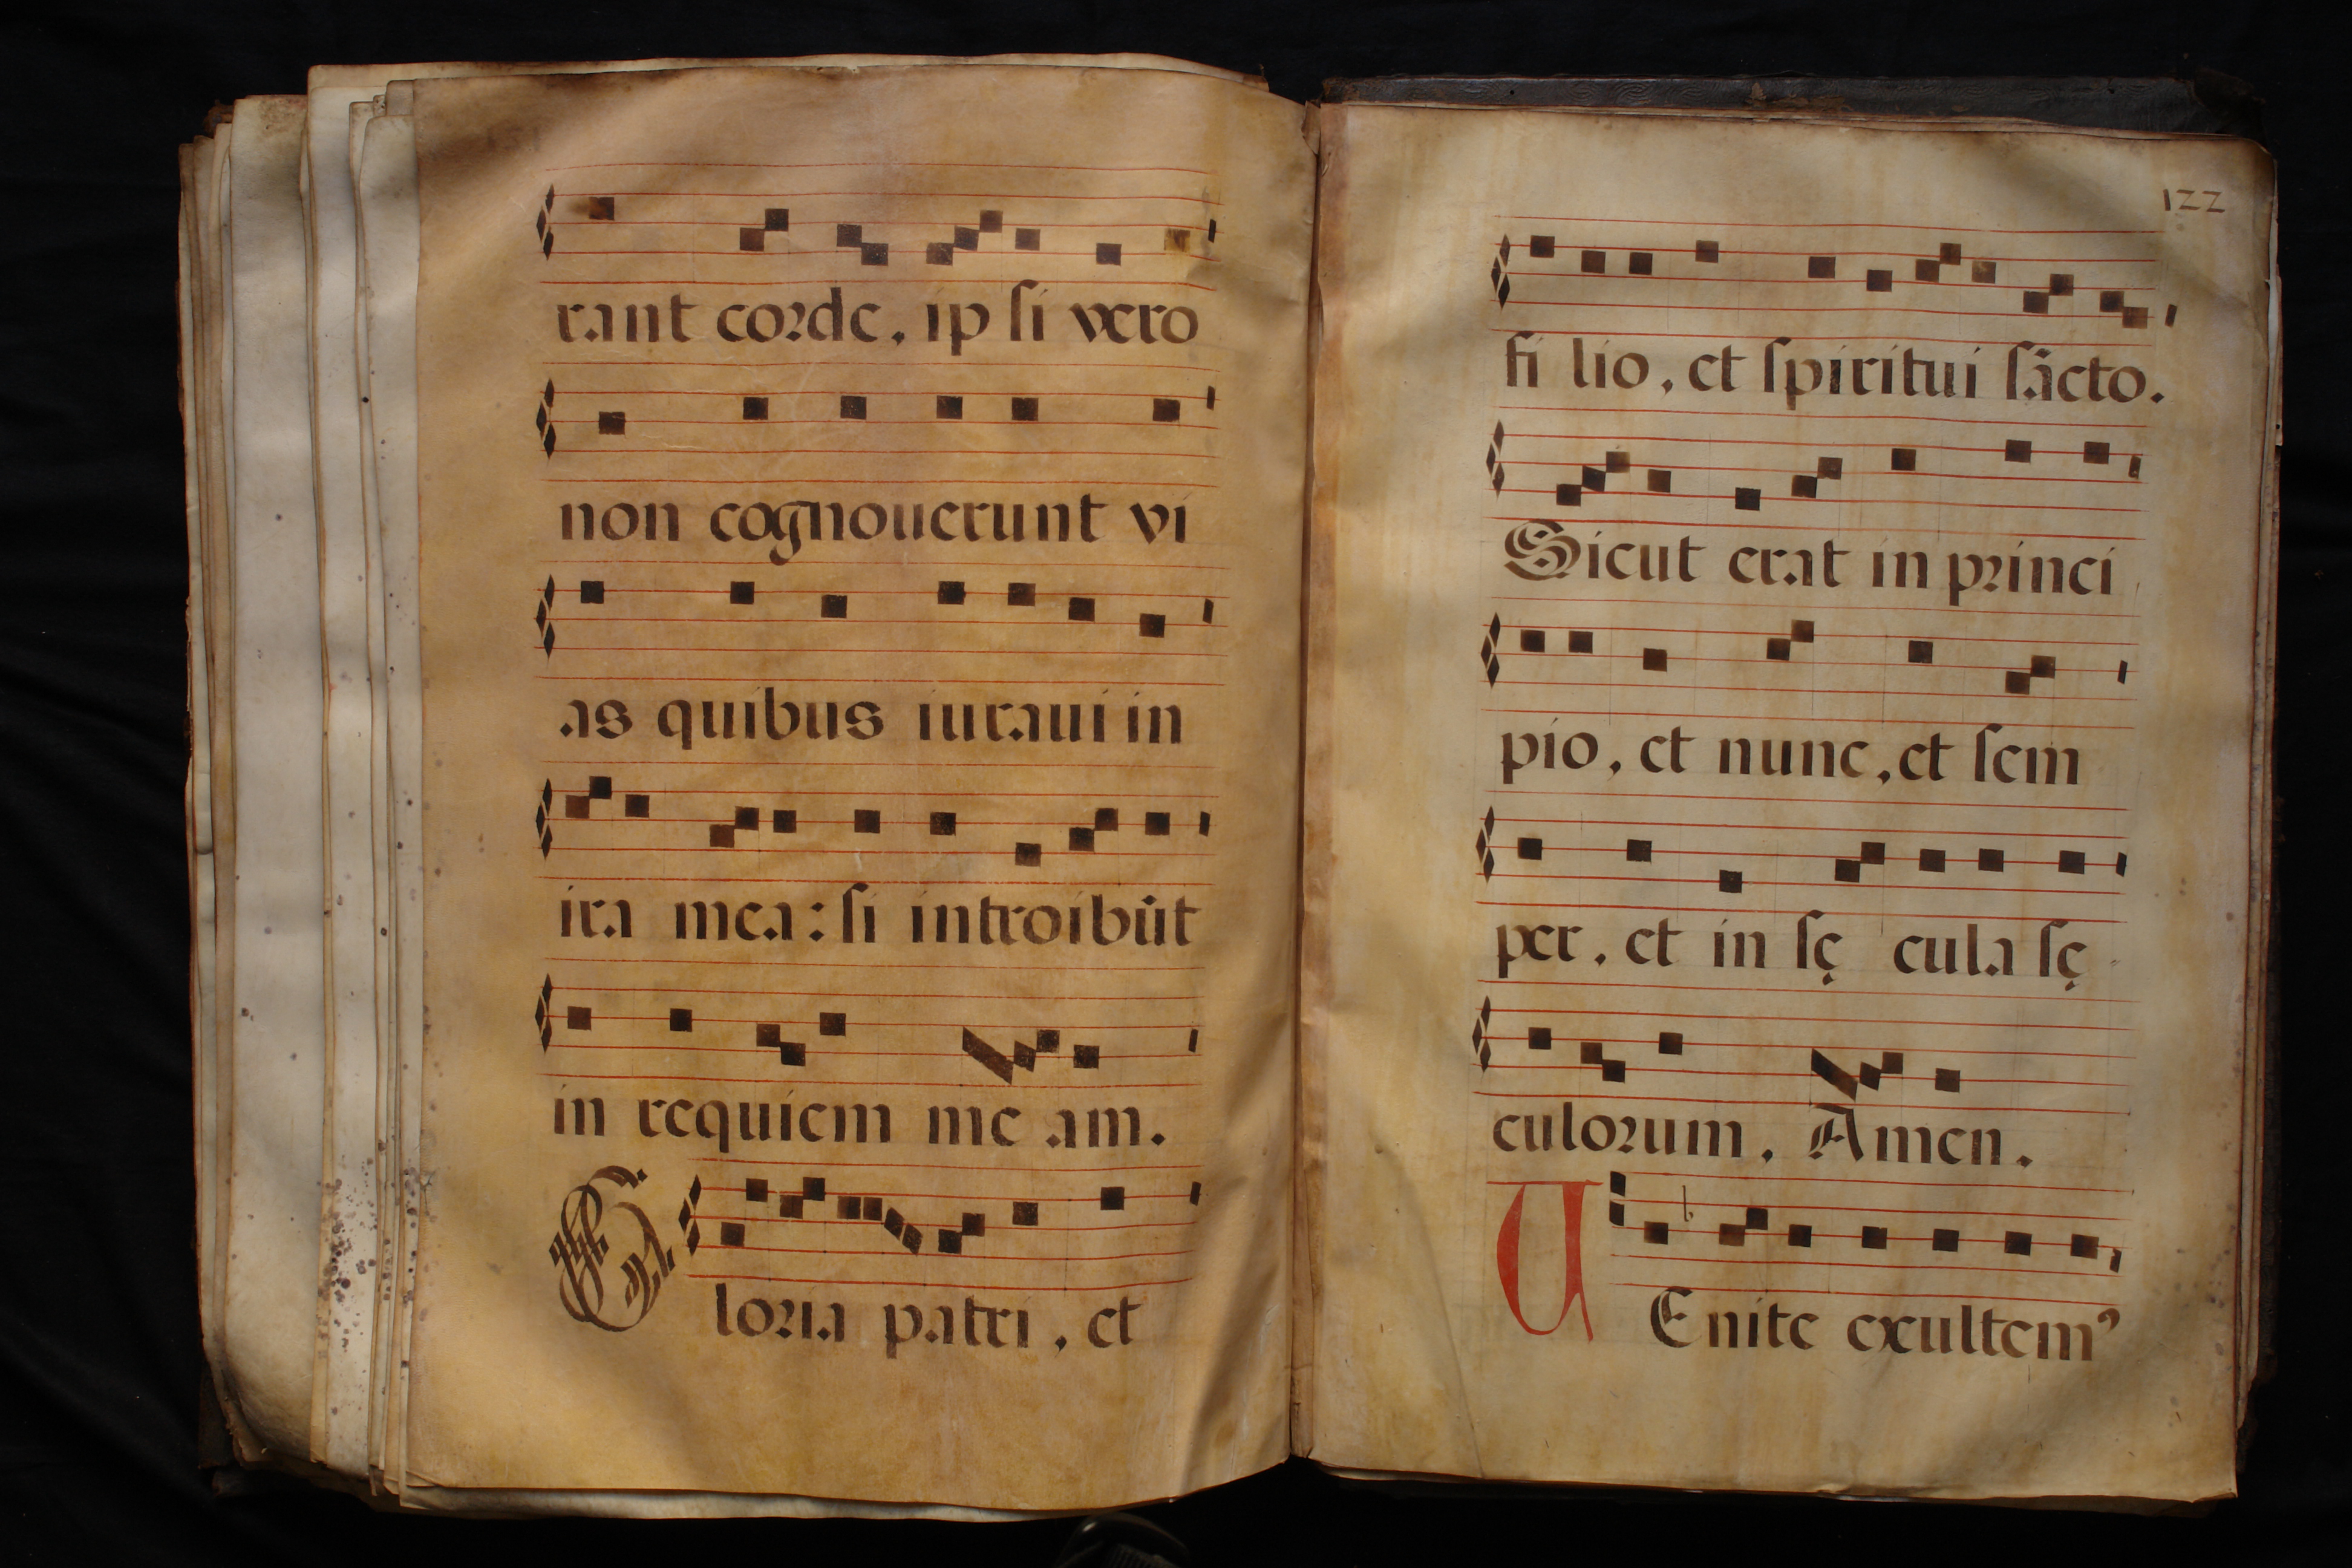 rant corde. ip si vero
non cognouerunt vi
as quibus iuraui in
ira mea: si introibūt
in requiem me am.
Gloria patri, et
122
fi lio, et spiritui sācto.
Sicut erat in princi
pio, et nunc, et sem
per. et in sę cula sę
culorum. Amen.
VEnite exultemꝰ